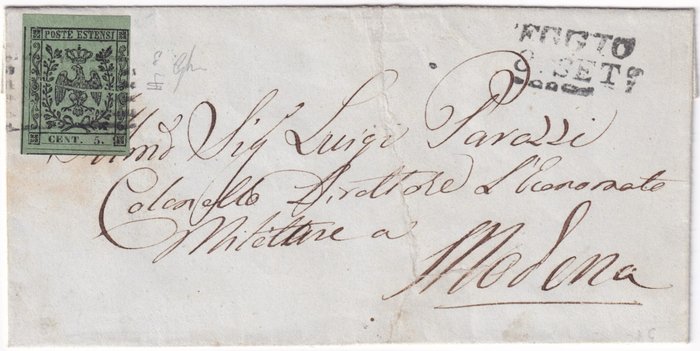 POSTE ESTENSI
CENT. 5.
EGGIO
SET
Sig Luigi Parazzi
Colonello Direttore L'Economato
Militare a
Modena